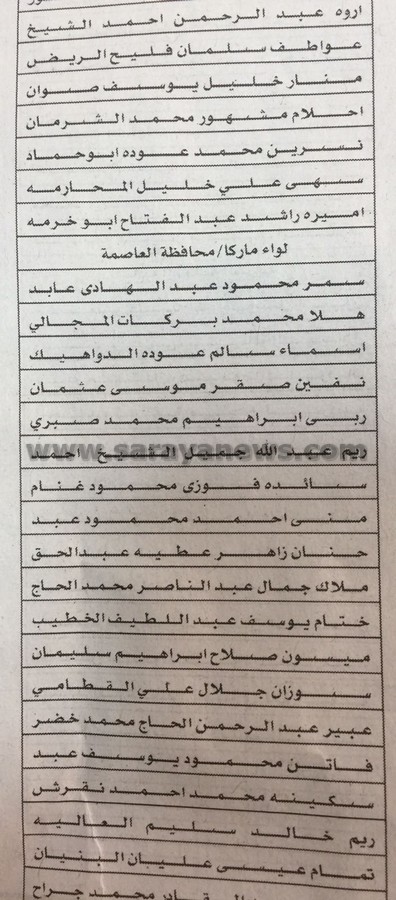 اروه عبد الرحمن احمد الشيخ
عواطف سلمان فليح الريض
منار خليل يوسف صوان
احلام مشهور محمد الشرمان
نسرين محمد عوده ابوحماد
سهى علي خليل المحارمه
اميره راشد عبد الفتاح ابو خرمه
لواء ماركا/محافظة العاصمة
سمر محمود عبد الهادى عابد
هلا محمد بركات المجالي
اسماء سالم عوده الدواهيك
نفين صقر موسى عثمان
ربى ابراهيم محمد صبري
www.sarayanews.com
ريم عبد الله جمل الشيخ احمد
سائده فوزى محمود غنام
منى احمد محمود عبد
حنان زاهر عطيه عبدالحق
ملاك جمال عبد الناصر محمد الحاج
ختام يوسف عبد اللطيف الخطيب
ميسون صلاح ابراهيم سليمان
سوزان جلال علي القطامي
عبير عبد الرحمن الحاج محمد خضر
فاتن محمود يوسف عبد
سكينه محمد احمد نقرش
ريم خالد سليم العاليه
تمام عيسى عليان البنيان
قادر محمد جراح